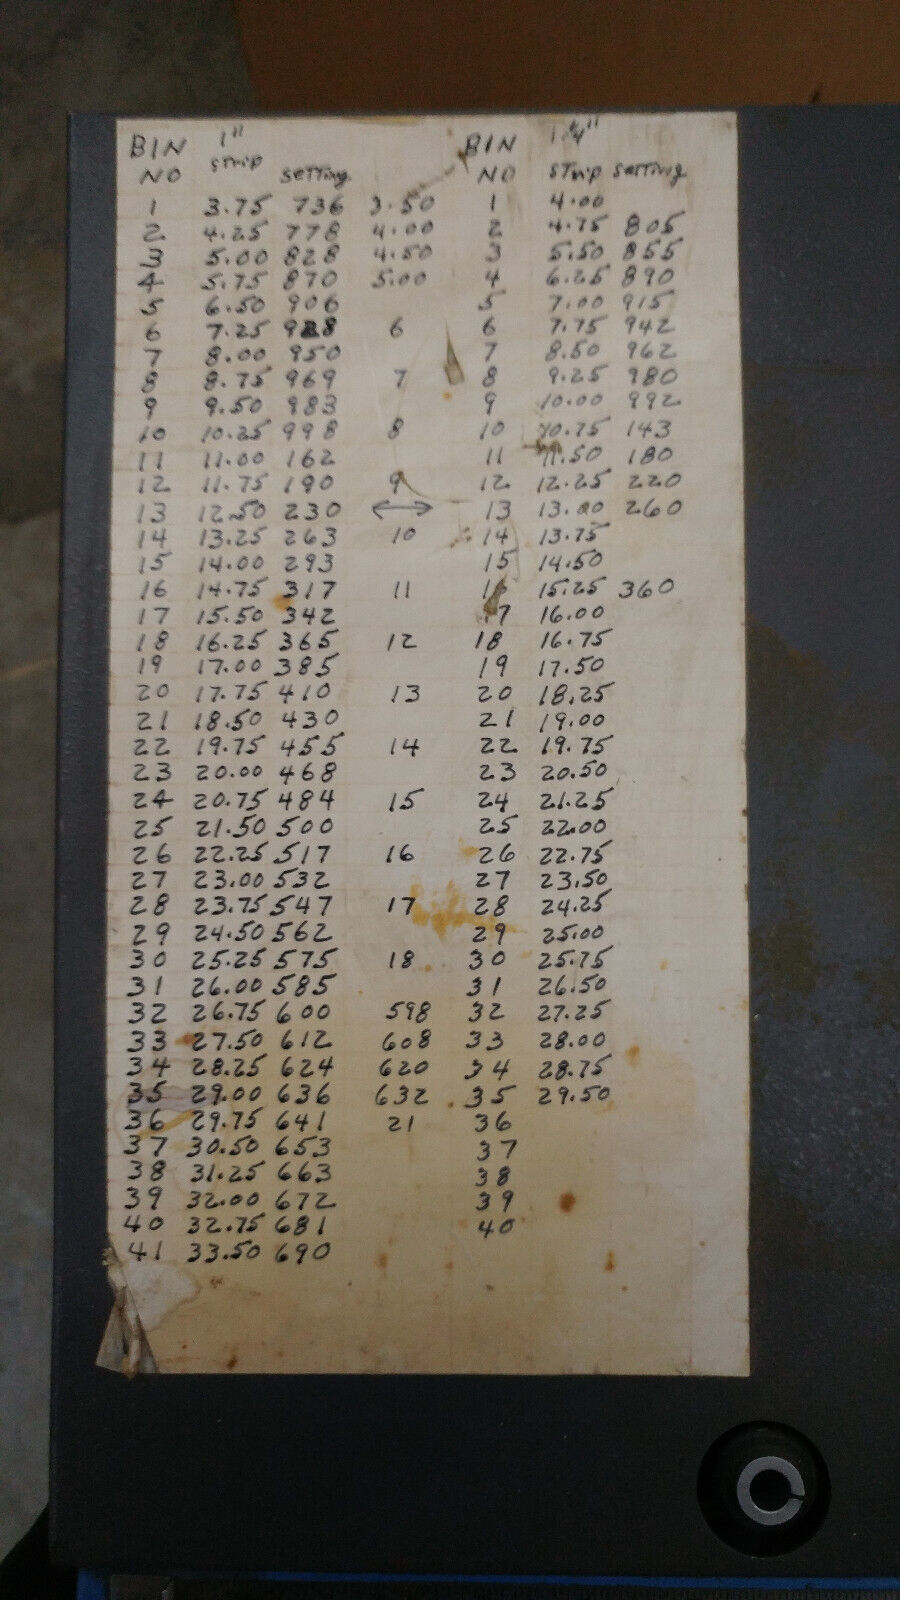 BIN 1" BIN 1 1/4"
NO strip setting NO strip setting
1 3.75 736 3.50 1 4.00
2 4.25 778 4.00 2 4.75 805
3 5.00 828 4.50 3 5.50 855
4 5.75 870 5.00 4 6.25 890
5 6.50 906 5 7.00 915
6 7.25 928 6 6 7.75 942
7 8.00 950 7 8.50 962
8 8.75 969 7 8 9.25 980
9 9.50 983 9 10.00 992
10 10.25 998 8 10 10.75 143
11 11.00 162 11 11.50 180
12 11.75 190 9 12 12.25 220
13 12.50 230 ↔ 13 13.00 260
14 13.25 263 10 14 13.75
15 14.00 293 15 14.50
16 14.75 317 11 16 15.25 360
17 15.50 342 17 16.00
18 16.25 365 12 18 16.75
19 17.00 385 19 17.50
20 17.75 410 13 20 18.25
21 18.50 430 21 19.00
22 19.75 455 14 22 19.75
23 20.00 468 23 20.50
24 20.75 484 15 24 21.25
25 21.50 500 25 22.00
26 22.25 517 16 26 22.75
27 23.00 532 27 23.50
28 23.75 547 17 28 24.25
29 24.50 562 29 25.00
30 25.25 575 18 30 25.75
31 26.00 585 31 26.50
32 26.75 600 598 32 27.25
33 27.50 612 608 33 28.00
34 28.25 624 620 34 28.75
35 29.00 636 632 35 29.50
36 29.75 641 21 36
37 30.50 653 37
38 31.25 663 38
39 32.00 672 39
40 32.75 681 40
41 33.50 690